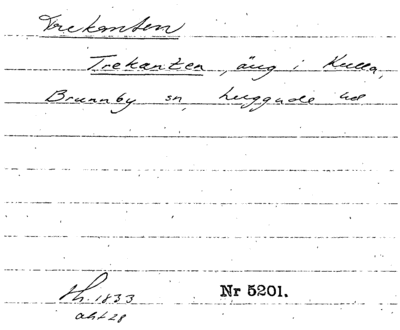 Trekanten
Trekanten, äng i Kulla,
Brunnby sn, Luggude hd
Lh. 1833
akt 28
Nr 5201.